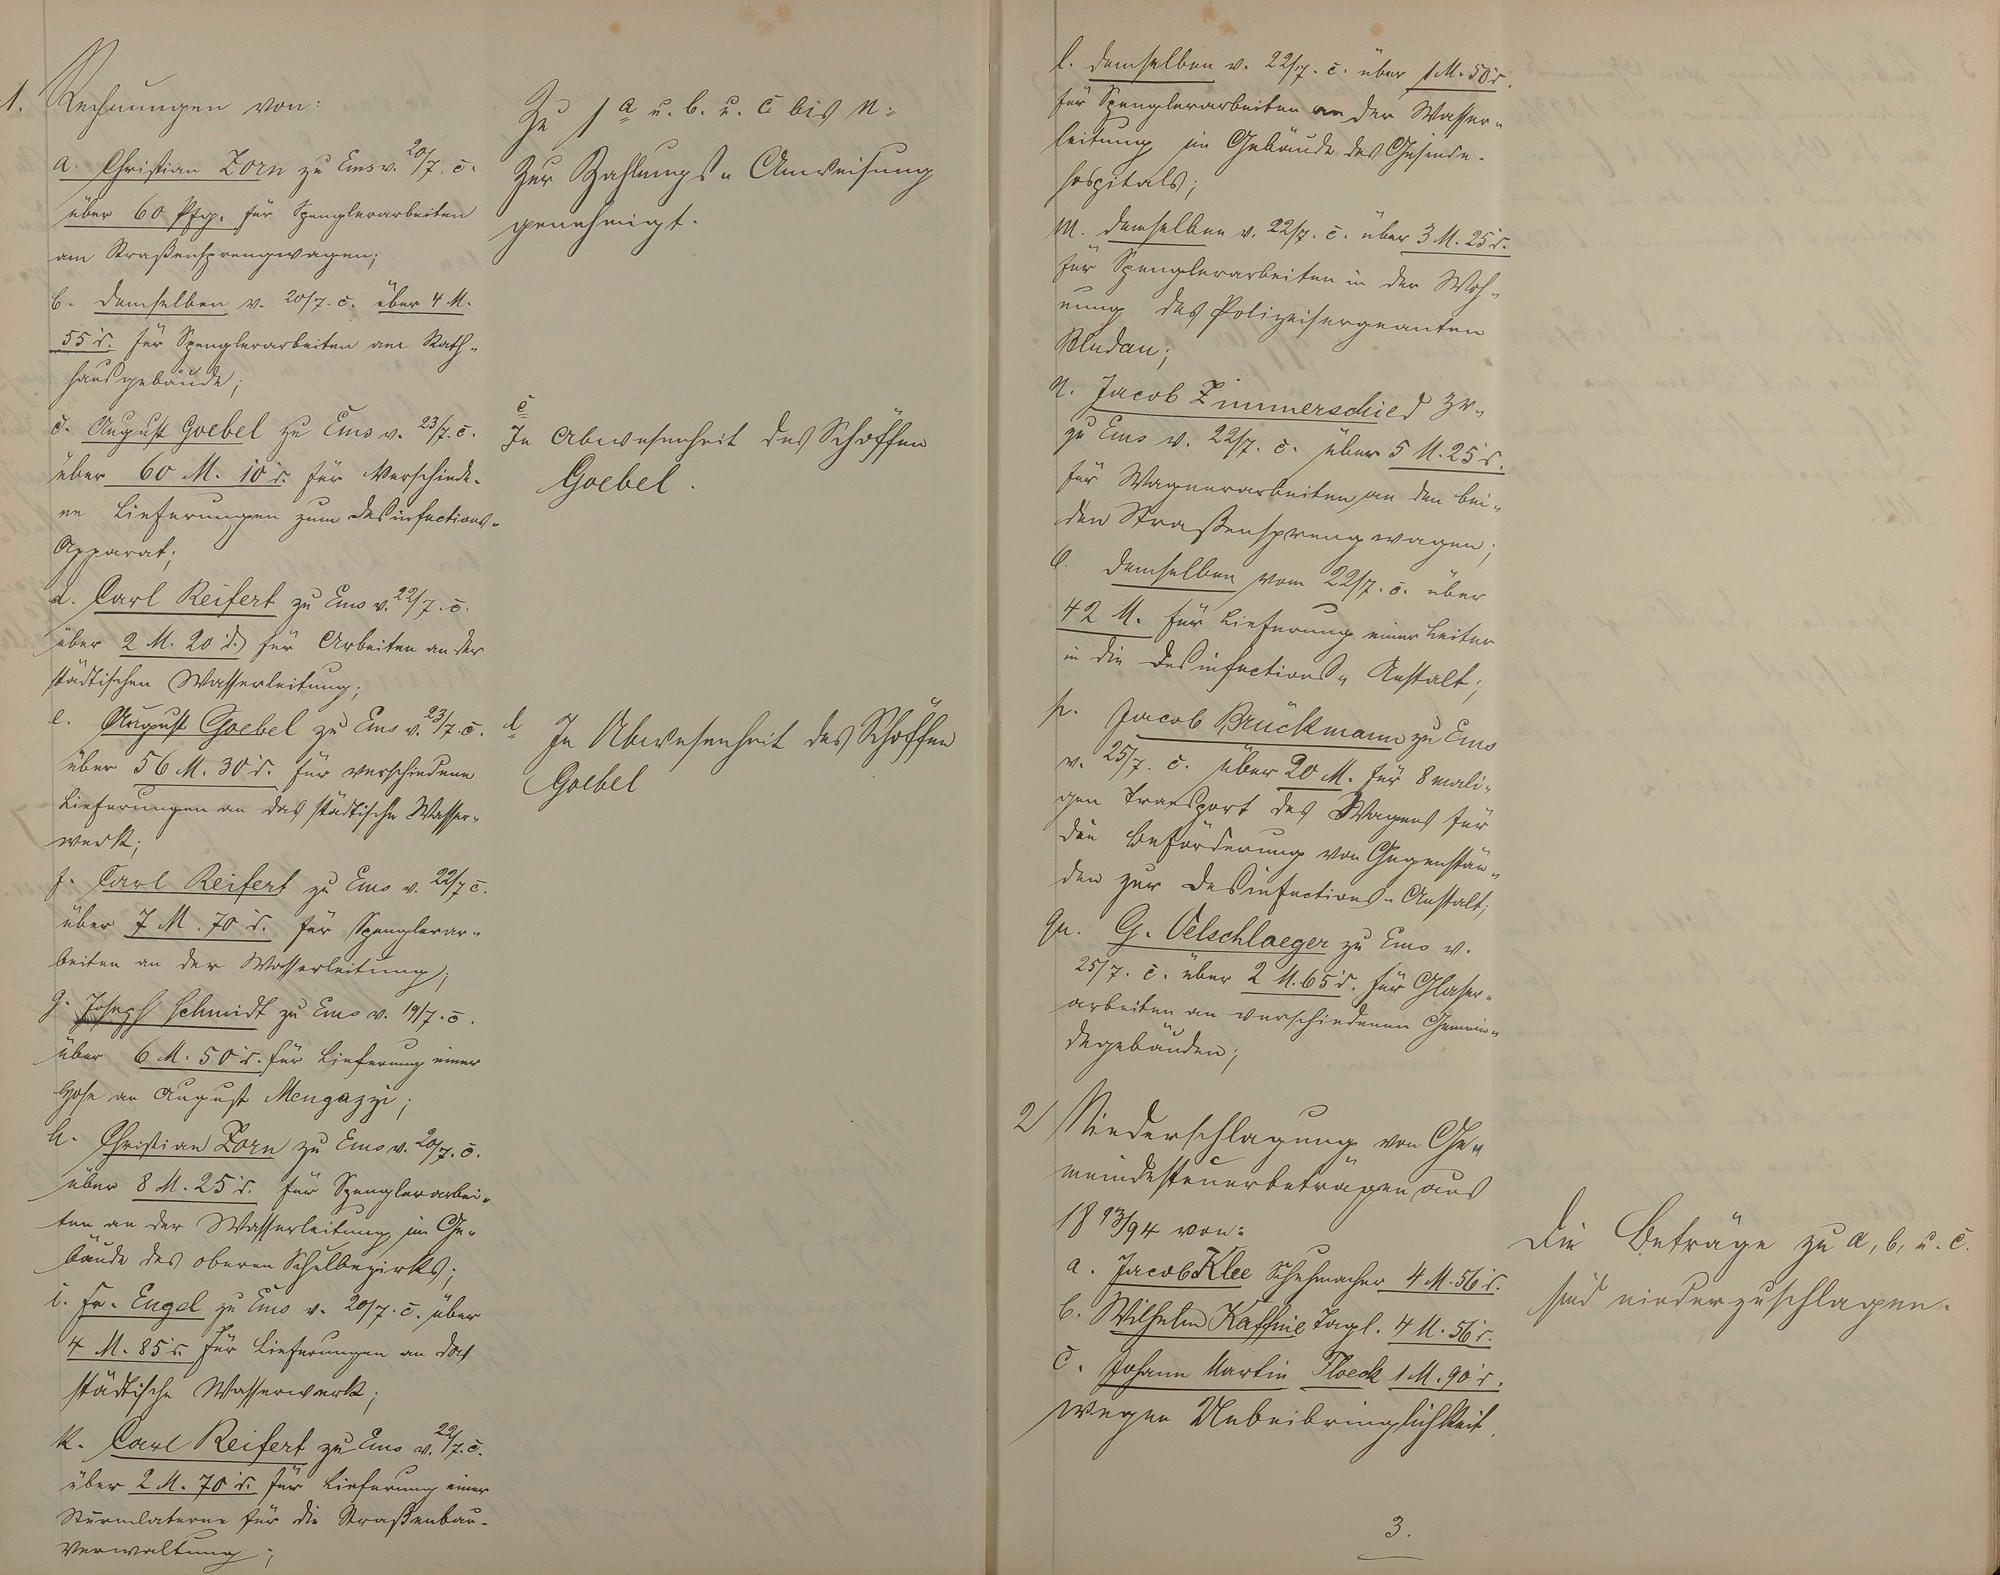 1. Rechnungen von:
a. Christian Zorn zu Ems v. 20/7. c.
über 60 Pfg. für Spenglerarbeiten
am Straßensprengwagen;
b. demselben v. 20/7. c. über 4 M.
55 d. für Spenglerarbeiten am Rath-
hausgebäude;
c. August Goebel zu Ems v. 23/7. c.
über 60 M. 10 d. für verschiede-
ne Lieferungen zum Desinfections-
Apparat;
d. Carl Reifert zu Ems v. 22/7. c.
über 2 M. 20 d. für Arbeiten an der
städtischen Wasserleitung;
e. August Goebel zu Ems v. 23/7. c.
über 56 M. 30 d. für verschiedene
Lieferungen an das städtische Wasser-
werk;
f. Carl Reifert zu Ems v. 22/7 c.
über 7 M. 70 d. für Spenglerar-
beiten an der Wasserleitung;
g. Joseph Schmidt zu Ems v. 19/7. c.
über 6 M. 50 d. für Lieferung einer
Hose an August Mengazzi;
h. Christian Zorn zu Ems v. 20/7. c.
über 8 M. 25 d. für Spenglerarbei-
ten an der Wasserleitung im Ge-
bäude des oberen Schulbezirks;
i. Fr. Engel zu Ems v. 20/7. c. über
4 M. 85 d. für Lieferungen an das
städtische Wasserwerk;
k. Carl Reifert zu Ems v. 22/7. c.
über 2 M. 70 d. für Lieferung einer
Sturmlaterne für die Straßenbau-
verwaltung;
Zu 1 a u. b. u. c bis n:
Zur Zahlungs-Anweisung
genehmigt.
c
In Abwesenheit des Schöffen
Goebel.
e
In Abwesenheit des Schöffen
Goebel
l. demselben v. 22/7. c. über 1 M. 50 d.
für Spenglerarbeiten an der Wasser-
leitung im Gebäude des Gesinde-
hospitals;
m. demselben v. 22/7. c. über 3 M. 25 d.
für Spenglerarbeiten in der Woh-
nung des Polizeisergeanten
Bludau;
n. Jacob Zimmerschied
zu Ems v. 22/7. c. über 5 M. 25 d.
für Wagnerarbeiten an den bei-
den Straßensprengwagen;
o. demselben vom 22/7. c. über
42 M. für Lieferung einer Leiter
in die Desinfections-Anstalt;
p. Jacob Bruckmann zu Ems
v. 25/7. c. über 20 M. für 8 mali-
gen Transport des Wagens für
die Beförderung von Gegenstän-
den zur Desinfections-Anstalt;
qu. G. Oelschlaeger zu Ems v.
25/7. c. über 2 M. 65 d. für Glaser-
arbeiten an verschiedenen Gemein-
degebäuden;
2/ Niederschlagung von Ge-
meindesteuerbeträgen aus
1893/94 von:
a. Jacob Klee Schuhmacher 4 M. 56 d.
b. Wilhelm Kaffine Tagl. 4 M. 56 d.
c. Johann Martin Floeck 1 M. 90 d.
wegen Unbeibringlichkeit.
Die Beträge zu a, b, u. c.
sind niederzuschlagen.
3.